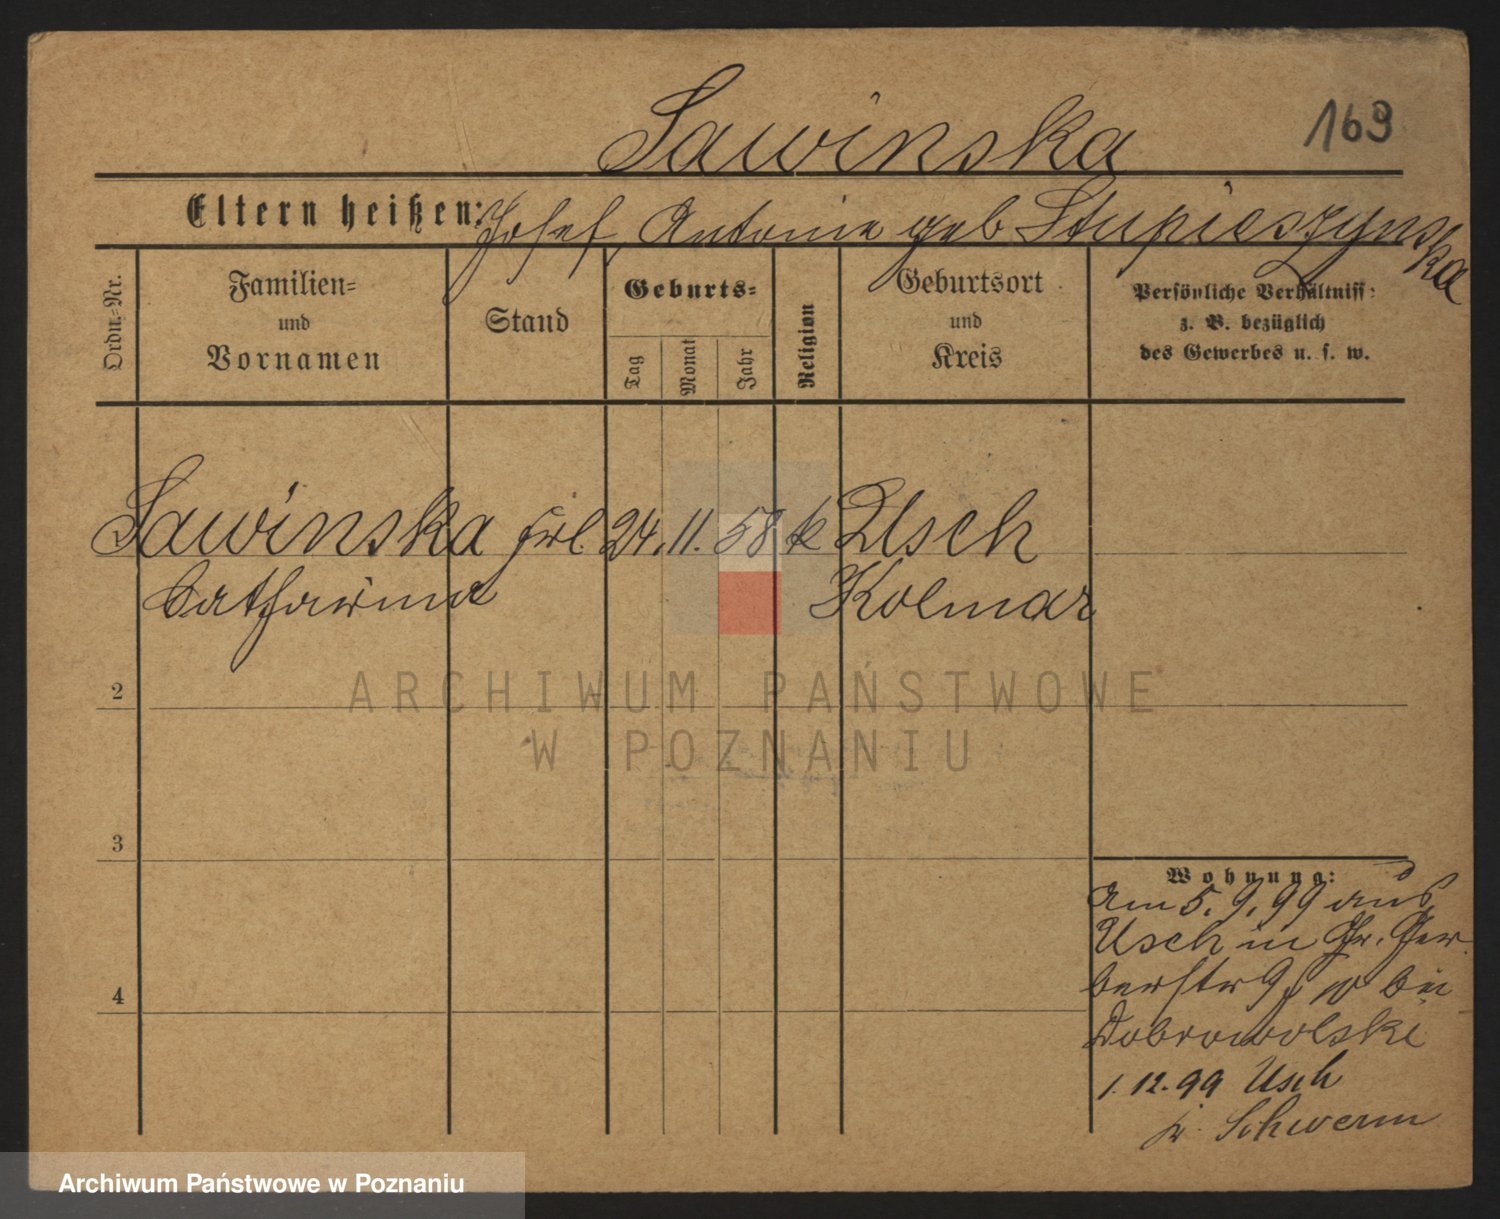 Sawinska
169
Eltern heißen: Josef, Antonie geb Stupieszynska
Ordn.-Nr.
Familien=
und
Vornamen
Stand
Geburts=
Tag
Monat
Jahr
Religion
Geburtsort
und
Kreis
Persönliche Verhältniss:
z. B. bezüglich
des Gewerbes u. s. w.
Sawinska frl. 24. 11. 58 k Usch
Catharina Kolmar
2
3
4
Wohnung:
am 5. 9. 99 aus
Usch in Gr. Ger
berstr 9 bei
Dobrowolski
1. 12. 99 Usch
Schwerin
ARCHIWUM PAŃSTWOWE
W POZNANIU
Archiwum Państwowe w Poznaniu